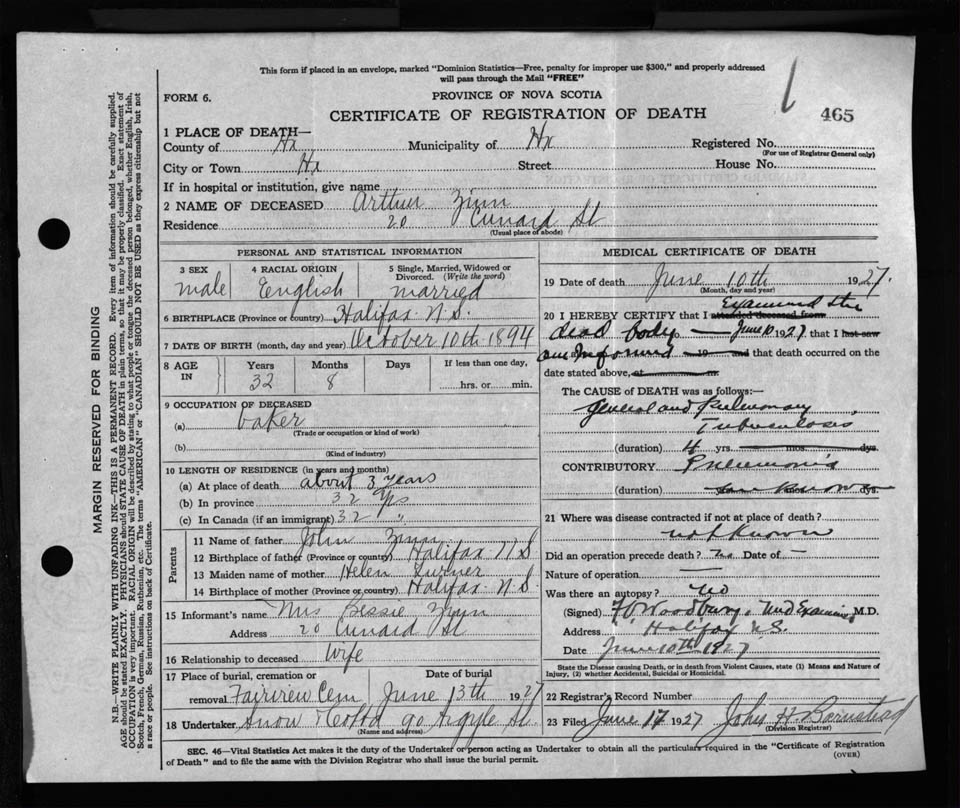 This form if placed in an envelope, marked "Dominion Statistics—Free, penalty for improper use $300," and properly addressed
will pass through the Mail "FREE"
FORM 6.
PROVINCE OF NOVA SCOTIA
465
CERTIFICATE OF REGISTRATION OF DEATH
1 PLACE OF DEATH—
County of Hx Municipality of Hx Registered No.
(For use of Registrar General only)
City or Town Hx Street House No.
If in hospital or institution, give name
2 NAME OF DECEASED Arthur Zinn
Residence 20 Cunard St
(Usual place of abode)
PERSONAL AND STATISTICAL INFORMATION
3 SEX male
4 RACIAL ORIGIN English
5 Single, Married, Widowed or Divorced. (Write the word) married
6 BIRTHPLACE (Province or country) Halifax N.S.
7 DATE OF BIRTH (month, day and year) October 10th 1894
8 AGE IN Years 32 Months 8 Days If less than one day, hrs. or min.
9 OCCUPATION OF DECEASED
(a) baker
(Trade or occupation or kind of work)
(b)
(Kind of industry)
10 LENGTH OF RESIDENCE (in years and months)
(a) At place of death about 3 years
(b) In province 32 yrs
(c) In Canada (if an immigrant) 32 "
Parents
11 Name of father John Zinn
12 Birthplace of father (Province or country) Halifax N S
13 Maiden name of mother Helen Turner
14 Birthplace of mother (Province or country) Halifax N.S.
15 Informant's name Mrs Bessie Zinn
Address 20 Cunard St
16 Relationship to deceased Wife
17 Place of burial, cremation or removal Fairview Cem
Date of burial June 13th 1927
18 Undertaker Snow & Co Ltd 90 Argyle St.
(Name and address)
MEDICAL CERTIFICATE OF DEATH
19 Date of death June 10th 1927.
(Month, day and year)
20 I HEREBY CERTIFY that I attended deceased from Examined the
dead body June 10 1927 that I last saw
am Informed 19 and that death occurred on the
date stated above, at m.
The CAUSE of DEATH was as follows:—
General and Pulmonary
Tuberculosis
(duration) 4 yrs. mos. dys.
CONTRIBUTORY Pneumonia
(duration) dys.
21 Where was disease contracted if not at place of death?
not known
Did an operation precede death? no Date of —
Nature of operation —
Was there an autopsy? no
(Signed) Woodbury, Med Examiner, M.D.
Address Halifax N.S.
Date June 10th 1927
State the Disease causing Death, or in death from Violent Causes, state (1) Means and Nature of
Injury, (2) whether Accidental, Suicidal or Homicidal.
22 Registrar's Record Number
23 Filed June 14 1927 John H. Barnstead
(Division Registrar)
SEC. 46—Vital Statistics Act makes it the duty of the Undertaker or person acting as Undertaker to obtain all the particulars required in the "Certificate of Registration
of Death" and to file the same with the Division Registrar who shall issue the burial permit.
(OVER)
MARGIN RESERVED FOR BINDING
N.B.—WRITE PLAINLY WITH UNFADING INK—THIS IS A PERMANENT RECORD. Every item of information should be carefully supplied.
AGE should be stated EXACTLY. PHYSICIANS should STATE CAUSE OF DEATH in plain terms, so that it may be properly classified. Exact statement of
OCCUPATION is very important. RACIAL ORIGIN will be described by stating to what people or tongue the deceased person belonged, whether English, Irish,
Scotch, French, German, Russian, Ruthenian, etc. The terms "AMERICAN" or "CANADIAN" SHOULD NOT BE USED as they express citizenship but not
a race or people. See instructions on back of Certificate.